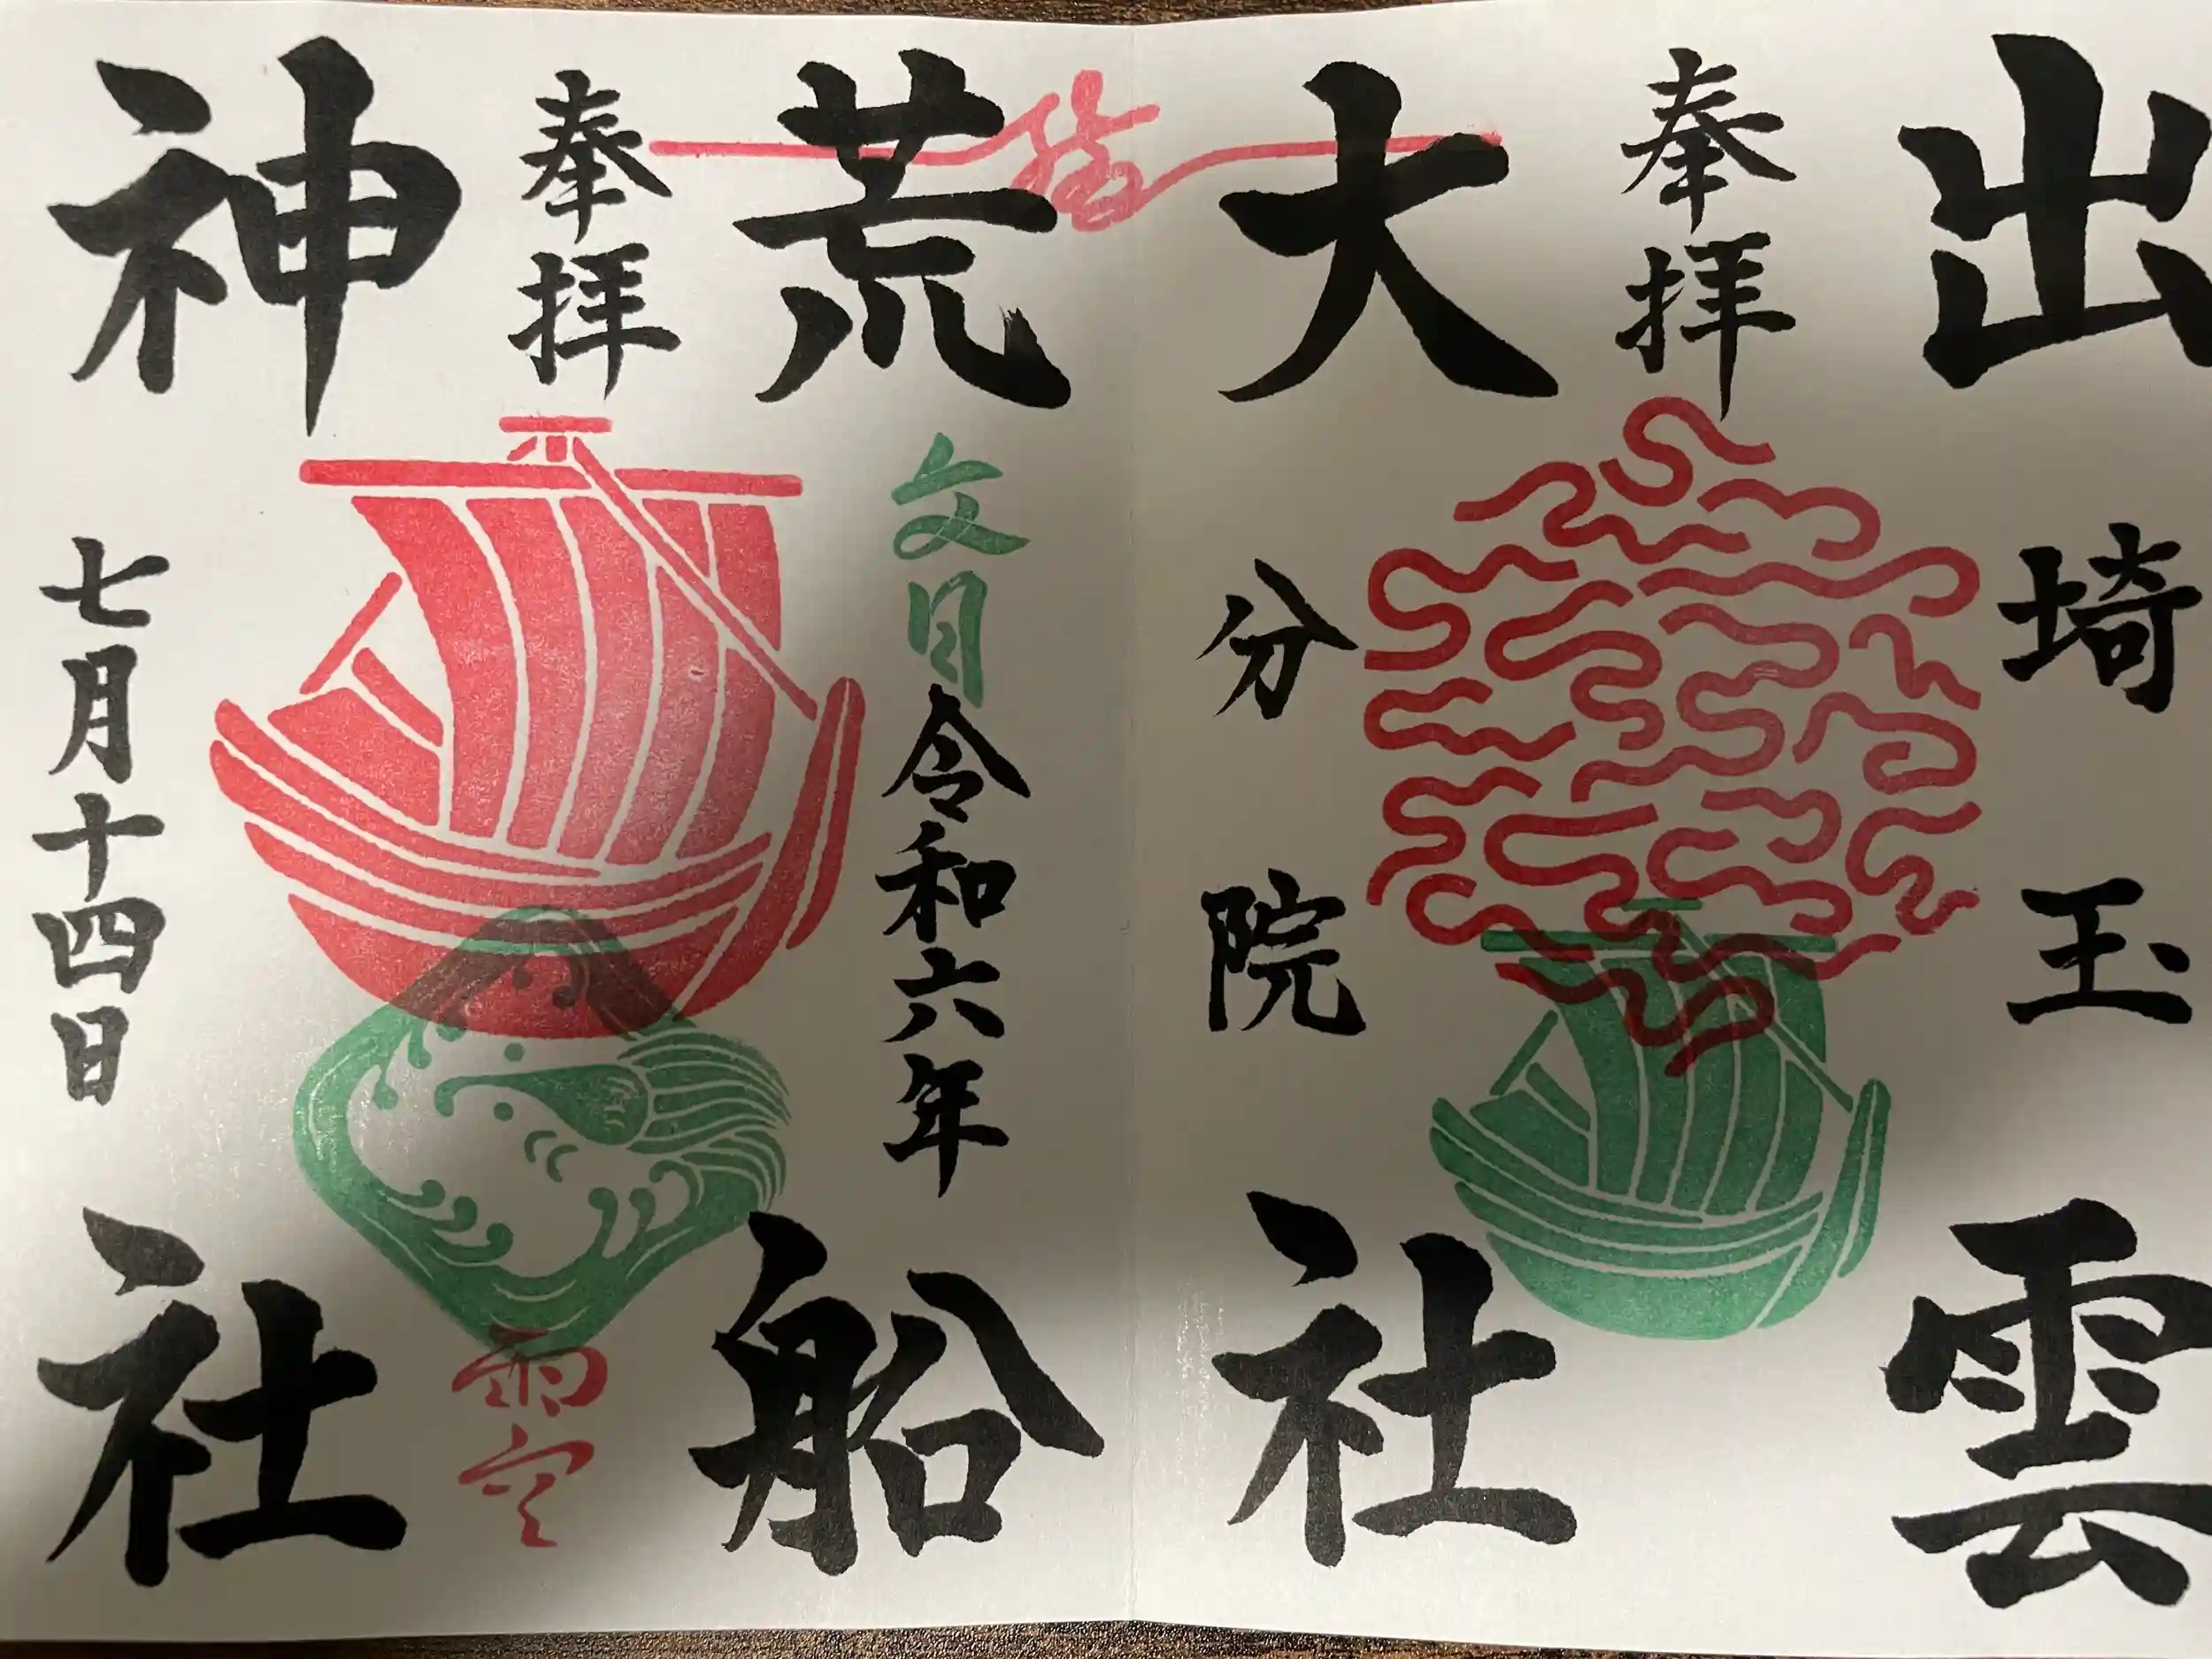 出雲
奉拝
大社
埼玉
分院
荒船
奉拝
神社
文月
令和六年
七月十四日
雨空